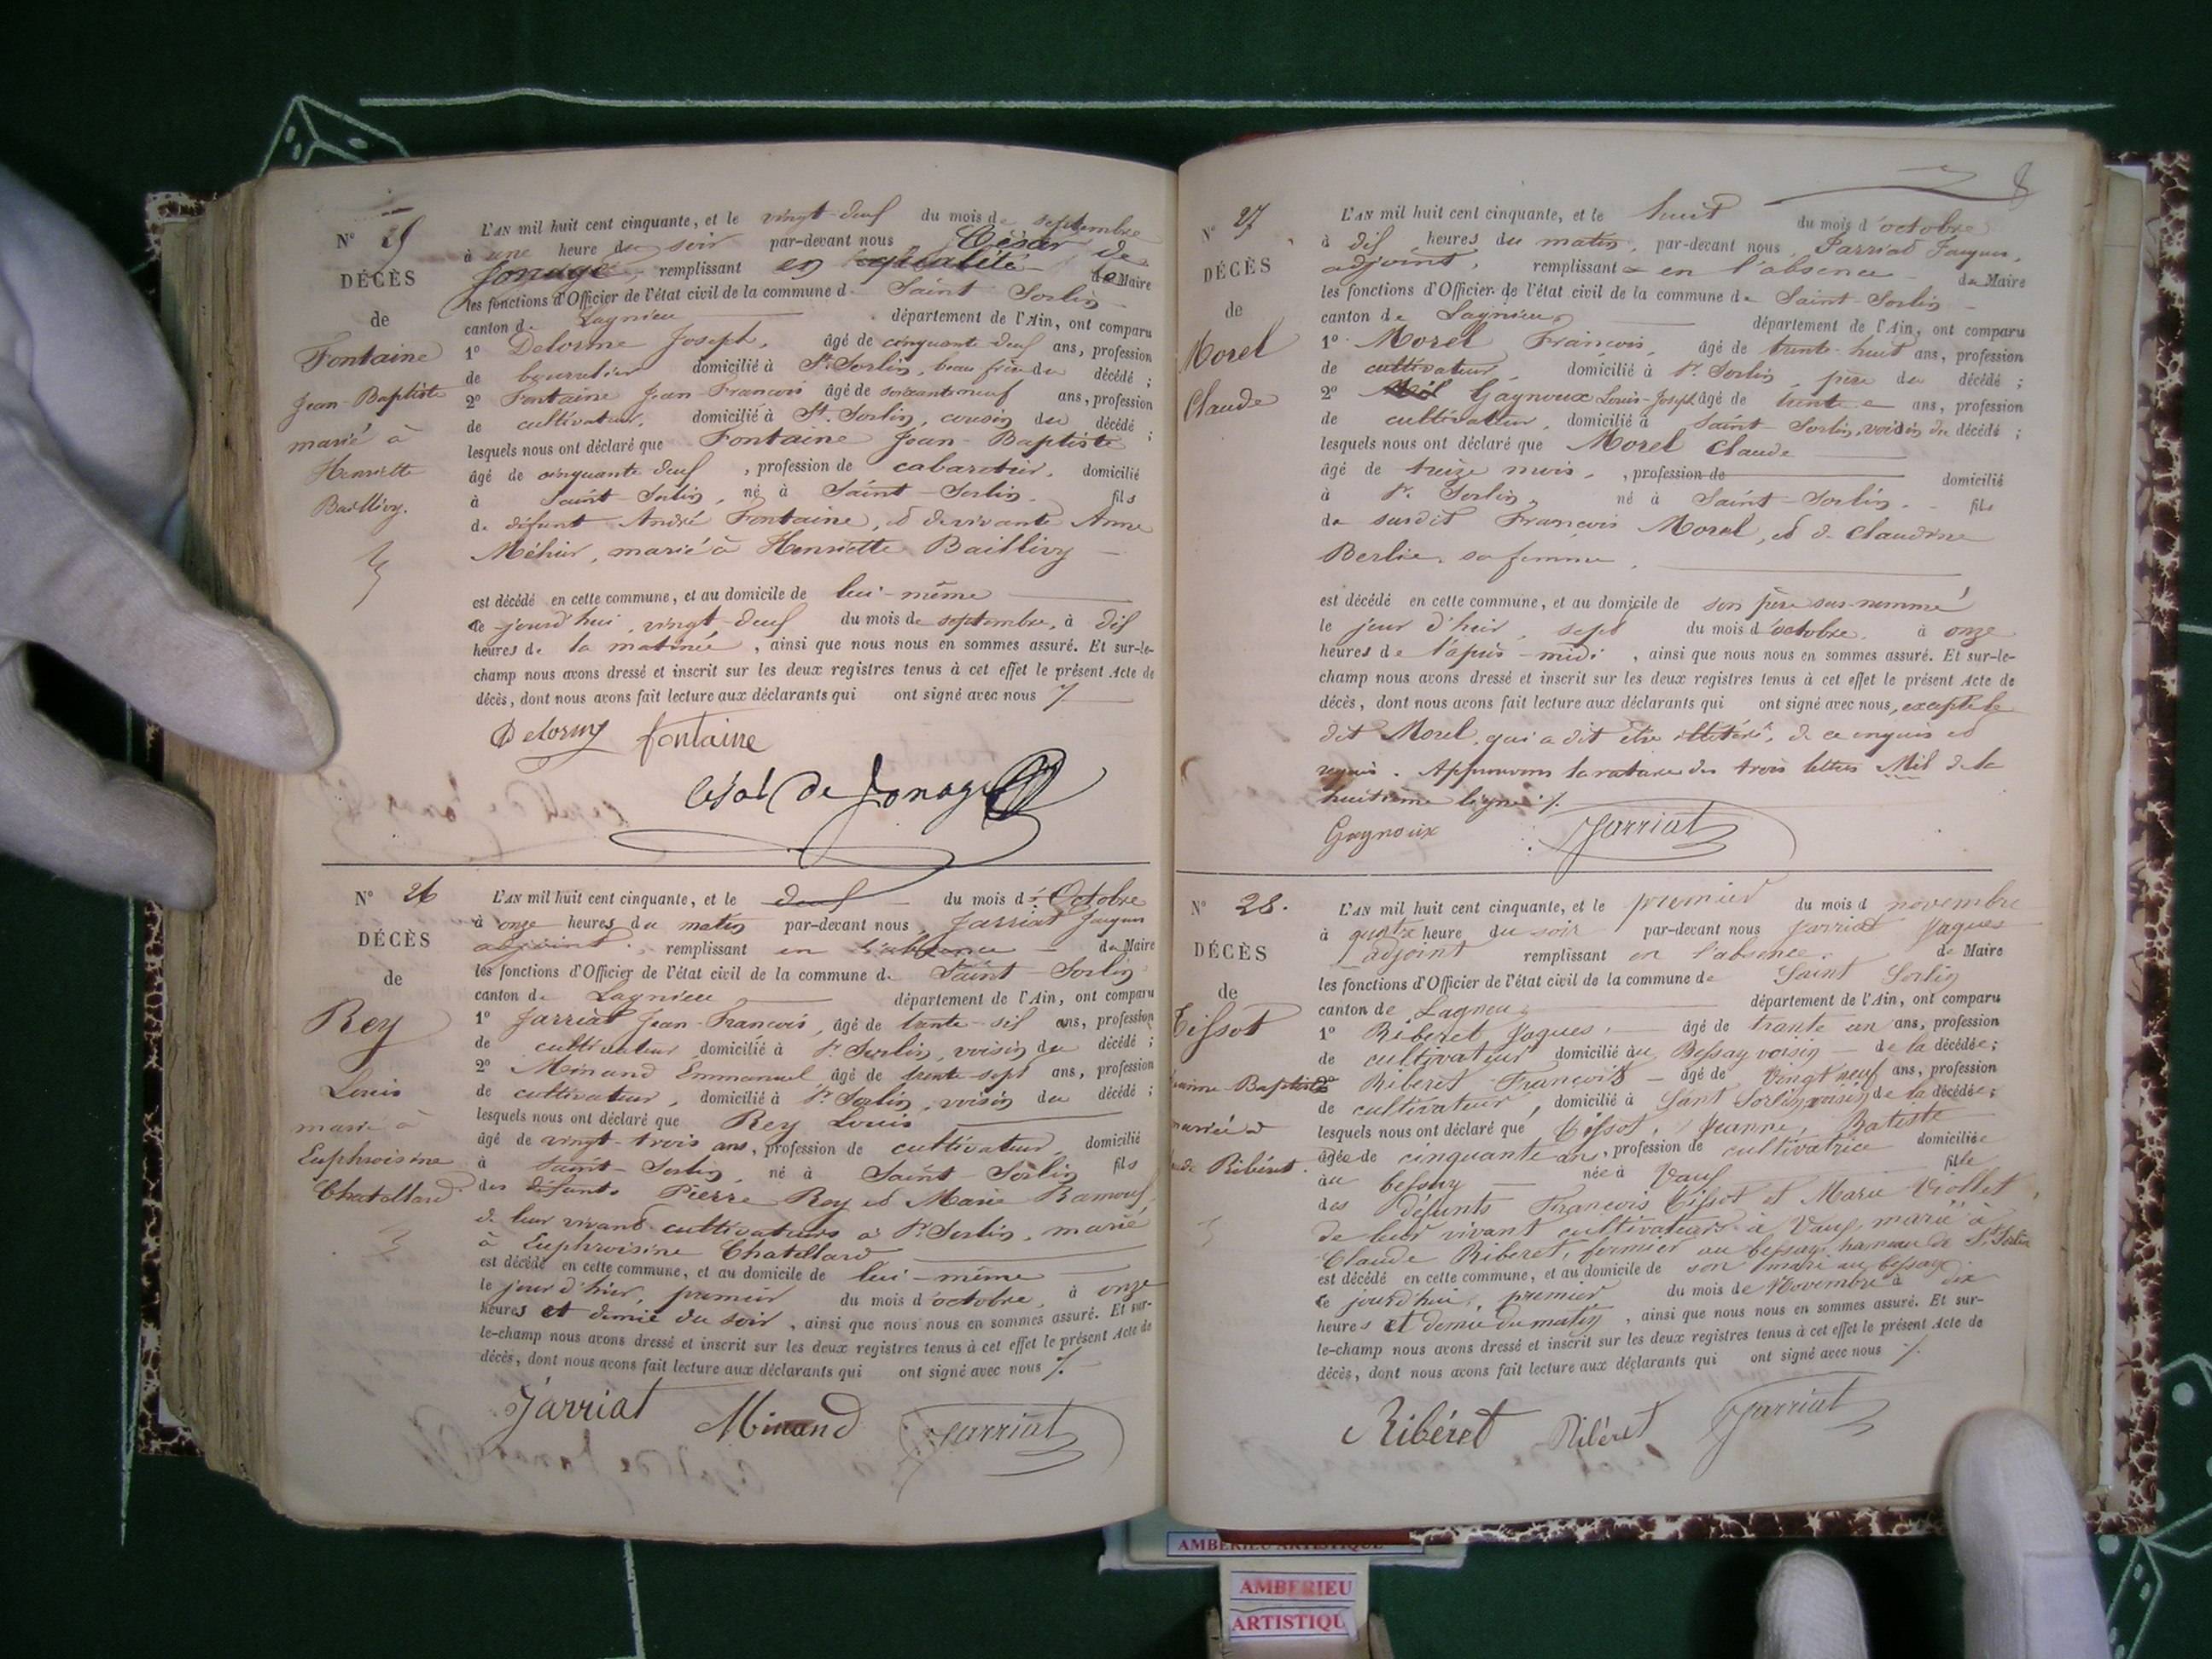 N° 25
DÉCÈS
de
Fontaine
Jean-Baptiste
marié à
Henriette
Baillivy.
L'AN mil huit cent cinquante, et le vingt-deux du mois de septembre
à une heure du soir par-devant nous César de
Jonage, remplissant en qualité de Maire
les fonctions d'Officier de l'état civil de la commune de Saint-Sorlin
canton de Lagnieu département de l'Ain, ont comparu
1° Delorme Joseph, âgé de cinquante deux ans, profession
de bourrelier domicilié à St. Sorlin, beau frère du décédé ;
2° Fontaine Jean-François âgé de soixante neuf ans, profession
de cultivateur, domicilié à St. Sorlin, cousin du décédé ;
lesquels nous ont déclaré que Fontaine Jean-Baptiste
âgé de cinquante deux, profession de cabaretier, domicilié
à Saint-Sorlin, né à Saint-Sorlin, fils
de défunt André Fontaine, et de vivante Anne
Méhier, marié à Henriette Baillivy
est décédé en cette commune, et au domicile de lui-même
ce jourd'hui, vingt-deux du mois de septembre, à dix
heures de la matinée, ainsi que nous nous en sommes assuré. Et sur-le-
champ nous avons dressé et inscrit sur les deux registres tenus à cet effet le présent Acte de
décès, dont nous avons fait lecture aux déclarants qui ont signé avec nous
Delorme fontaine
César de Jonage
N° 26
DÉCÈS
de
Rey
Louis
marié à
Euphroisine
Chatellard
L'AN mil huit cent cinquante, et le deux du mois d'Octobre
à onze heures du matin par-devant nous Jarriat Jaques
adjoint, remplissant en l'absence du Maire
les fonctions d'Officier de l'état civil de la commune de Saint-Sorlin
canton de Lagnieu département de l'Ain, ont comparu
1° Jarriat Jean-François, âgé de trente-six ans, profession
de cultivateur domicilié à St. Sorlin, voisin du décédé ;
2° Minand Emmanuel âgé de trente-sept ans, profession
de cultivateur, domicilié à St. Sorlin, voisin du décédé ;
lesquels nous ont déclaré que Rey Louis
âgé de vingt-trois ans, profession de cultivateur, domicilié
à Saint-Sorlin, né à Saint-Sorlin fils
des défunts Pierre Rey et Marie Ramoux,
de leur vivant cultivateurs à St. Sorlin, marié
à Euphroisine Chatellard
est décédé en cette commune, et au domicile de lui-même
le jour d'hier, premier du mois d'octobre, à onze
heures et demie du soir, ainsi que nous nous en sommes assuré. Et sur-
le-champ nous avons dressé et inscrit sur les deux registres tenus à cet effet le présent Acte de
décès, dont nous avons fait lecture aux déclarants qui ont signé avec nous
Jarriat Minand Jarriat
8
N° 27
DÉCÈS
de
Morel
Claude
L'AN mil huit cent cinquante, et le huit du mois d'octobre
à dix heures du matin, par-devant nous Jarriat Jaques,
adjoint, remplissant en l'absence du Maire
les fonctions d'Officier de l'état civil de la commune de Saint-Sorlin
canton de Lagnieu département de l'Ain, ont comparu
1° Morel François, âgé de trente-huit ans, profession
de cultivateur, domicilié à St. Sorlin, père du décédé ;
2° Mil Gagnoux Louis-Joseph âgé de trente ans, profession
de cultivateur, domicilié à Saint-Sorlin, voisin du décédé ;
lesquels nous ont déclaré que Morel Claude
âgé de treize mois, profession de domicilié
à St. Sorlin, né à Saint-Sorlin, fils
de susdit François Morel, et de Claudine
Berlie, sa femme,
est décédé en cette commune, et au domicile de son père sus-nommé
le jour d'hier, sept du mois d'octobre, à onze
heures de l'après-midi, ainsi que nous nous en sommes assuré. Et sur-le-
champ nous avons dressé et inscrit sur les deux registres tenus à cet effet le présent Acte de
décès, dont nous avons fait lecture aux déclarants qui ont signé avec nous, excepté le
dit Morel, qui a dit être illétéré, de ce enquis et
requis. Approuvons la rature des trois lettres Mil de la
huitième ligne
Gagnoux Jarriat
N° 28.
DÉCÈS
de
Tissot
Jeanne-Baptiste
mariée à
Claude Ribéret.
L'AN mil huit cent cinquante, et le premier du mois d novembre
à quatre heure du soir par-devant nous Jarriat Jaques
adjoint remplissant en l'absence de Maire
les fonctions d'Officier de l'état civil de la commune de Saint Sorlin
canton de Lagneu département de l'Ain, ont comparu
1° Riberet Jaques, âgé de trante un ans, profession
de cultivateur domicilié au Bessay voisin de la décédée ;
2° Riberet François âgé de vingt neuf ans, profession
de cultivateur, domicilié à Sant Sorlin, voisin de la décédée ;
lesquels nous ont déclaré que Tissot, Jeanne, Batiste
âgée de cinquante ans, profession de cultivatrice domiciliée
au bessay née à Vaux fille
des défunts François Tissot et Marie Viollet,
de leur vivant cultivateurs à Vaux, marié à
Claude Riberet, fermier au bessay hameau de St. Sorlin
est décédé en cette commune, et au domicile de son mari au bessay
ce jourd'hui, premier du mois de Novembre à dix
heures et demie du matin, ainsi que nous nous en sommes assuré. Et sur-
le-champ nous avons dressé et inscrit sur les deux registres tenus à cet effet le présent Acte de
décès, dont nous avons fait lecture aux déclarants qui ont signé avec nous
Ribéret Ribéret Jarriat
AMBERIEU ARTISTIQUE
AMBERIEU
ARTISTIQU